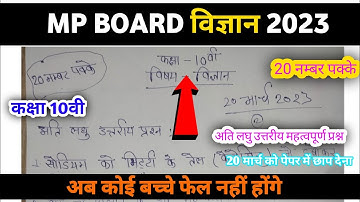 MP BOARD विज्ञान 2023
20 नम्बर पक्के
कक्षा - 10वी
विषय - विज्ञान
20 नम्बर पक्के
कक्षा 10वी
20 मार्च 2023
अति लघु उत्तरीय प्रश्न
अति लघु उत्तरीय महत्वपूर्ण प्रश्न
20 मार्च को पेपर में छाप देना
सोडियम को मिट्टी के तेल
अब कोई बच्चे फेल नहीं होंगे